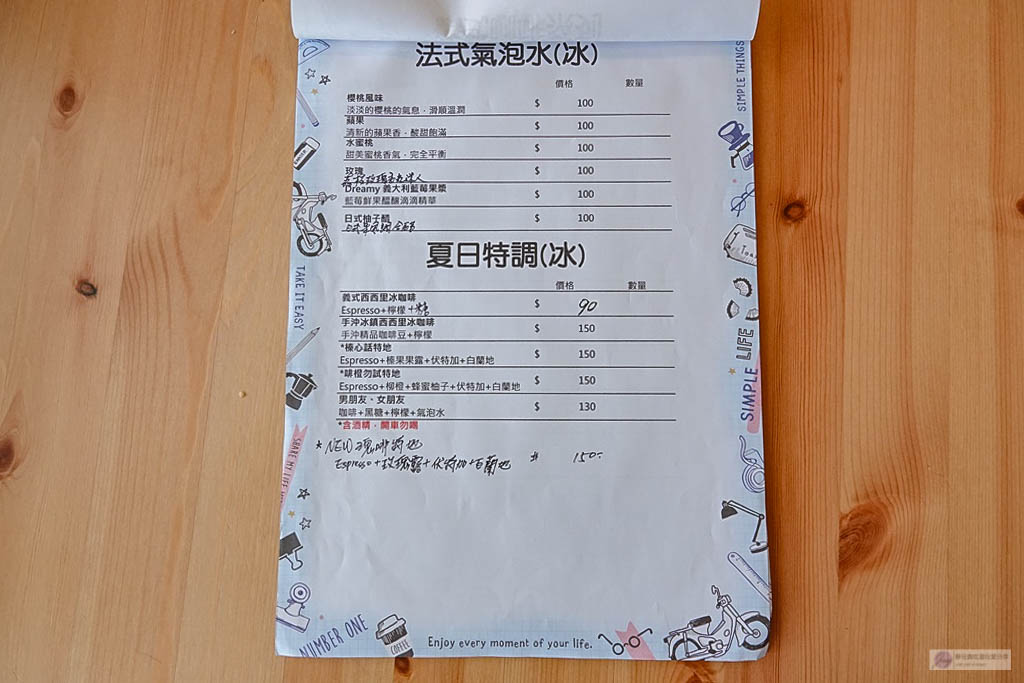 法式氣泡水(冰)
價格 數量
櫻桃風味
淡淡的櫻桃的氣息，滑順溫潤 $ 100
蘋果
清新的蘋果香，酸甜飽滿 $ 100
水蜜桃
甜美蜜桃香氣，完全平衡 $ 100
玫瑰 $ 100
Dreamy 義大利藍莓果漿
藍莓鮮果醞釀滴滴精華 $ 100
日式柚子醋 $ 100
夏日特調(冰)
價格 數量
義式西西里冰咖啡
Espresso+檸檬+糖 $ 90
手沖冰鎮西西里冰咖啡
手沖精品咖啡豆+檸檬 $ 150
*榛心話特地
Espresso+榛果果露+伏特加+白蘭地 $ 150
*啡橙勿試特地
Espresso+柳橙+蜂蜜柚子+伏特加+白蘭地 $ 150
男朋友、女朋友
咖啡+黑糖+檸檬+氣泡水 $ 130
*含酒精，開車勿喝
*NEW瑰啡特地
Espresso+玫瑰露+伏特加+白蘭地 $ 150.-
SIMPLE THINGS
TAKE IT EASY
SIMPLE LIFE
SHARE MY LIFE
NUMBER ONE
COFFEE
Enjoy every moment of your life.